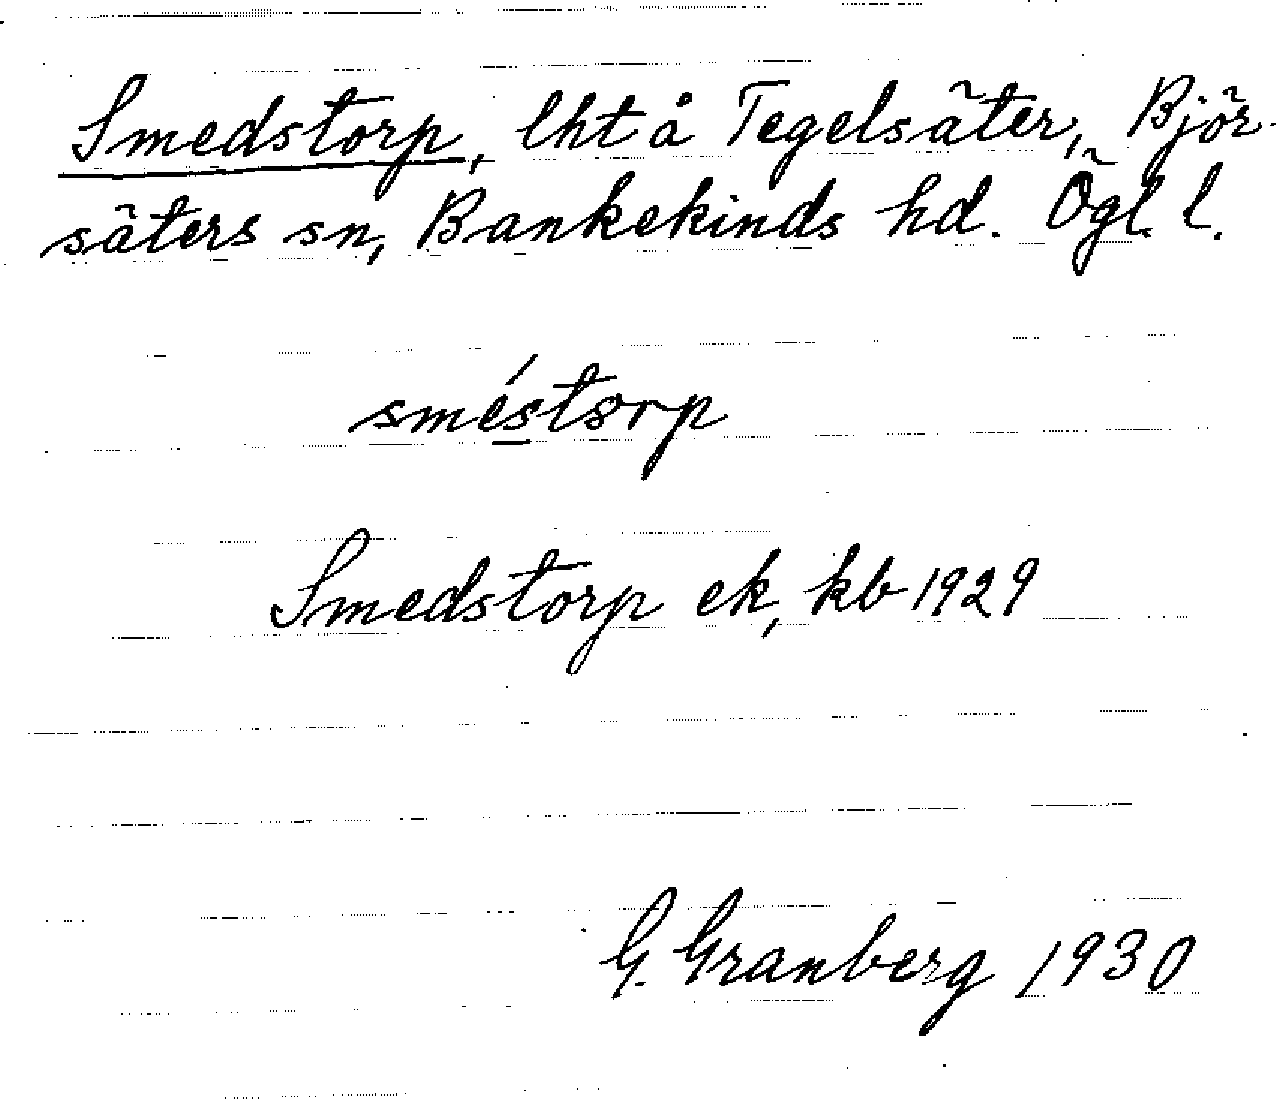 Smedstorp, lht å Tegelsäter, Björ-
säters sn, Bankekinds hd. Ögl. l.
sméstorp
Smedstorp ek, kb 1929
G. Granberg 1930